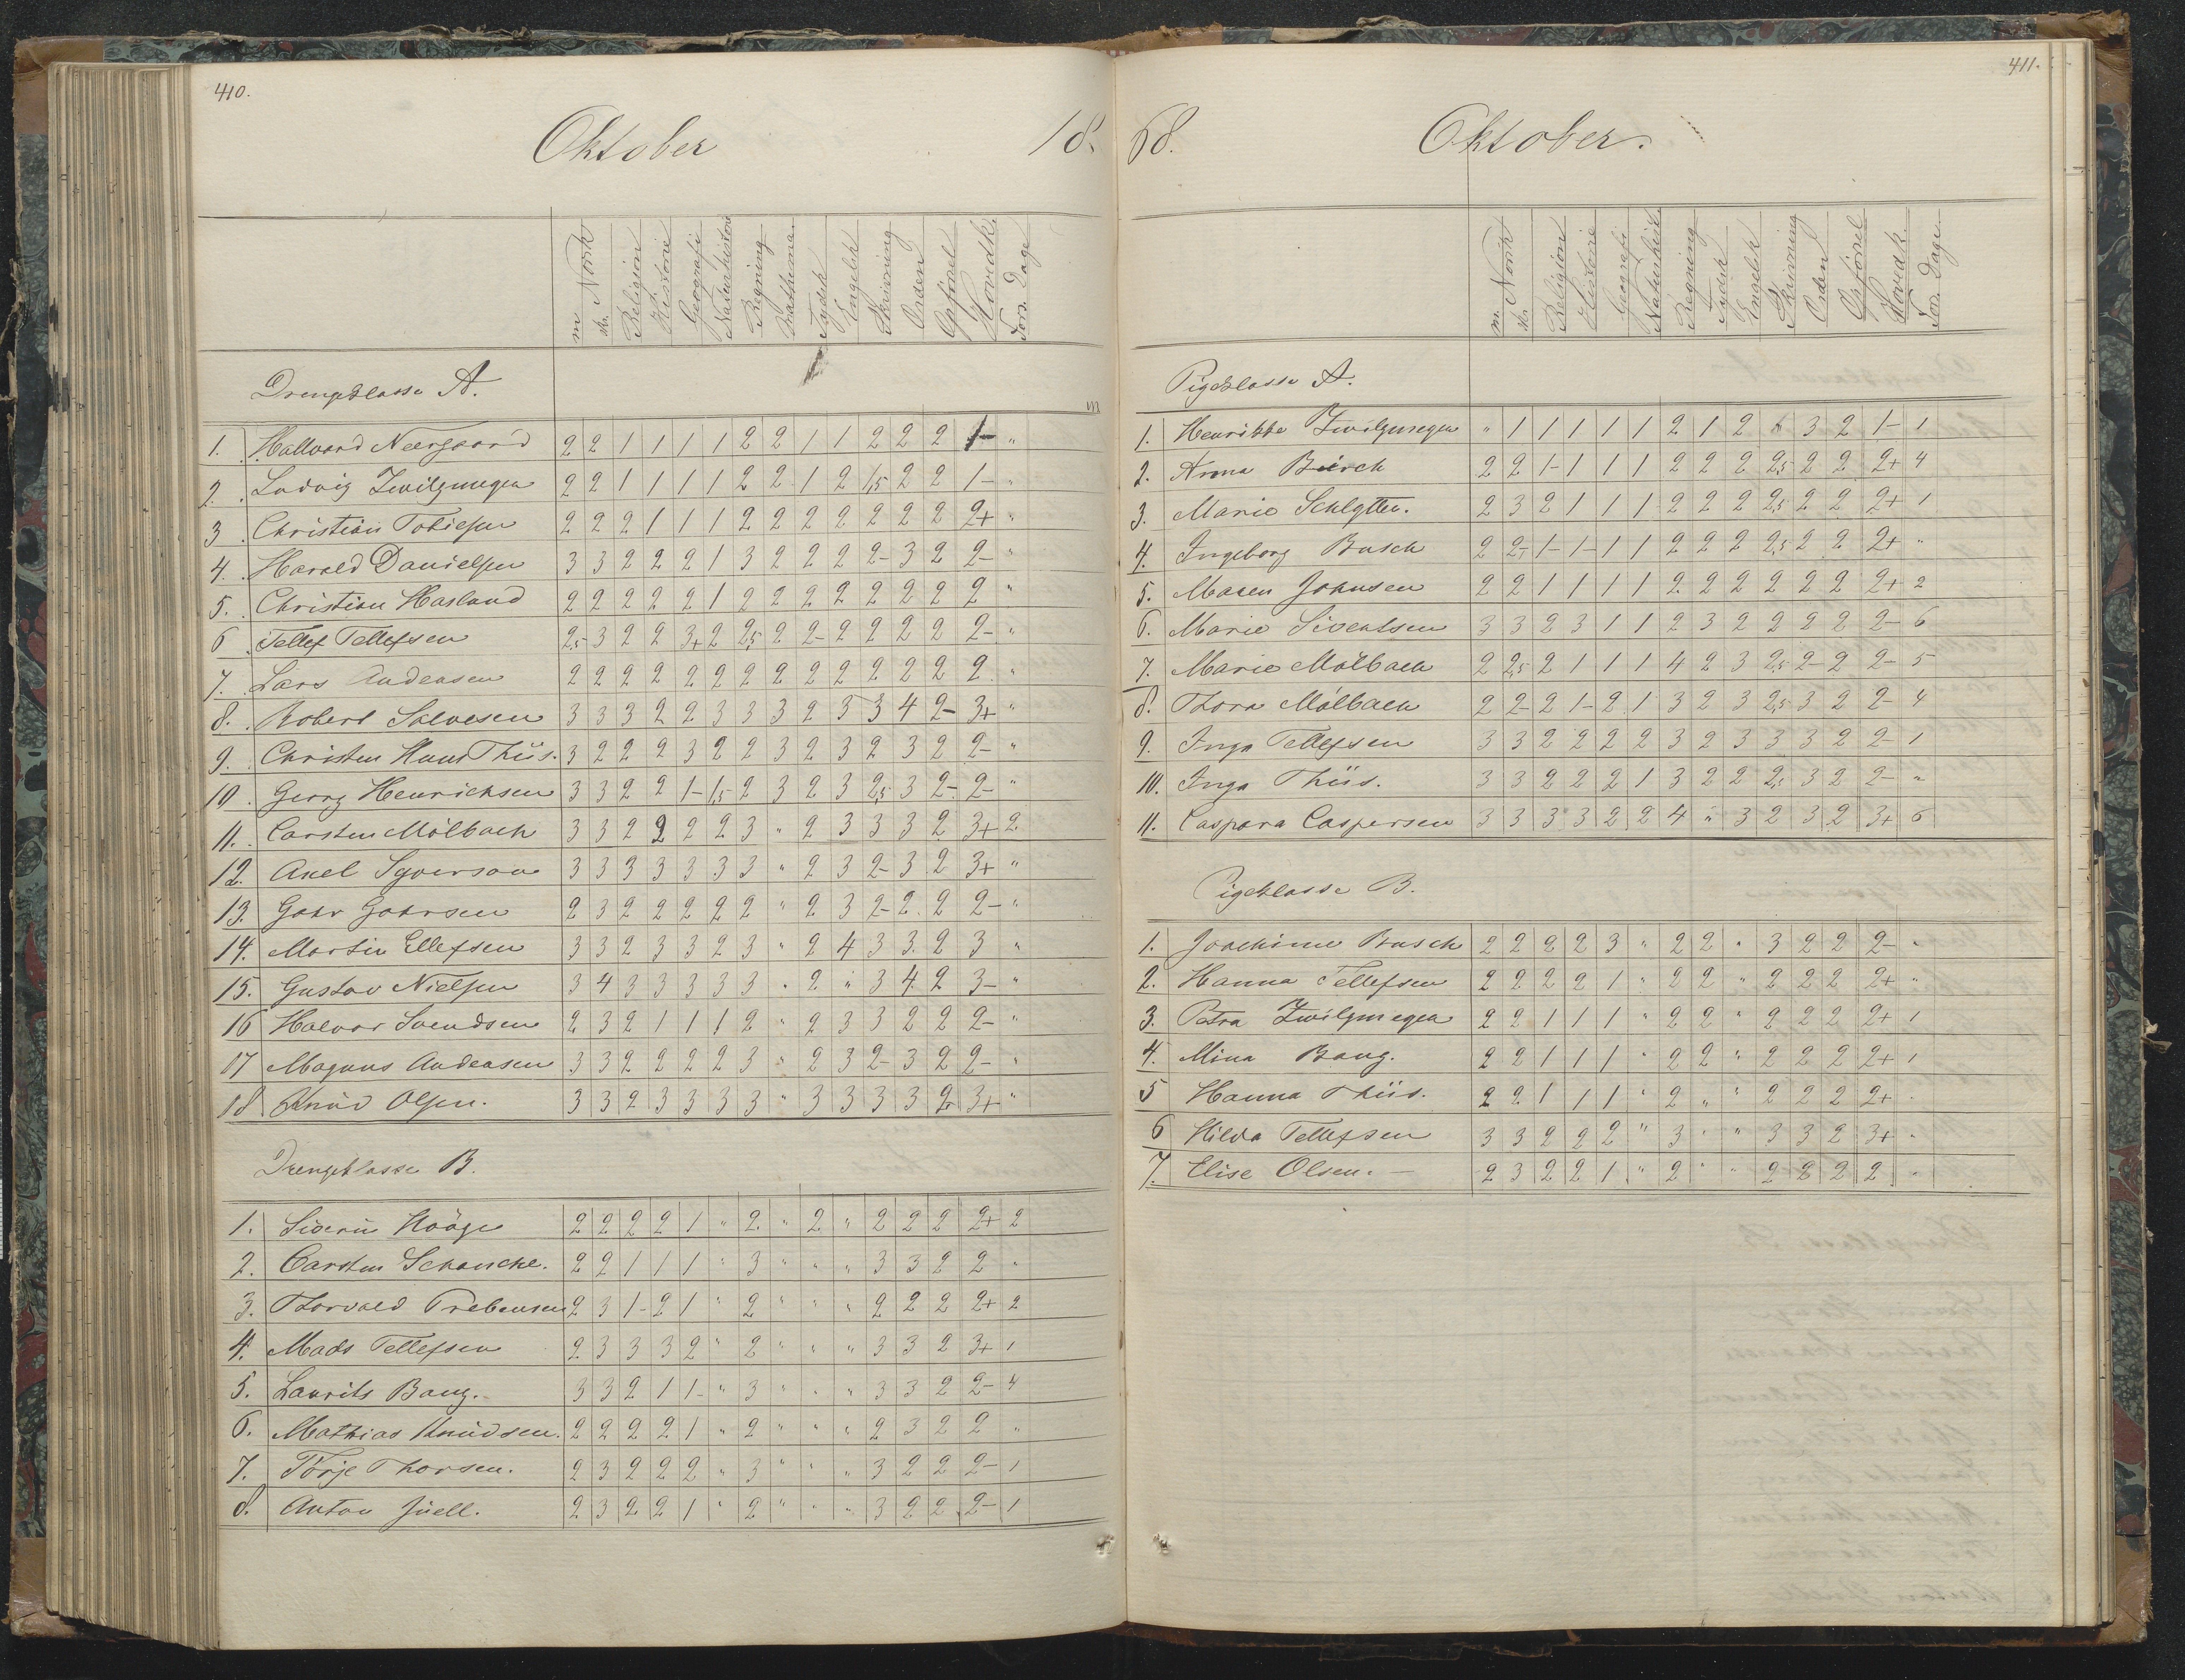 410.
Oktober 18.
m. Norsk
skr.
Religion
Historie
Geografi
Naturhistorie
Regning
Mathema.
Tydsk
Engelsk
Skrivning
Orden
Opförsel
Hovedk.
Fors. Dage
Drengeklasse A.
1. Hallvard Neergaard 2 2 1 1 1 1 2 2 1 1 2 2 2 1- "
2. Ludvig Zwilgmeyer 2 2 1 1 1 1 2 2 1 2 1,5 2 2 1- "
3. Christian Tobiesen 2 2 2 1 1 1 2 2 2 2 2 2 2 2+ "
4. Harald Danielsen 3 3 2 2 2 1 3 2 2 2 2- 3 2 2- "
5. Christian Hasland 2 2 2 2 2 1 2 2 2 2 2 2 2 2 "
6 Tellef Tellefsen 2,5 3 2 2 3+ 2 2,5 2 2- 2 2 2 2 2- "
7. Lars Andensen 2 2 2 2 2 2 2 2 2 2 2 2 2 2 "
8. Robert Salvesen 3 3 3 2 2 3 3 3 2 3 3 4 2- 3+ "
9. Christen Huus Thiis. 3 2 2 2 3 2 2 3 2 3 2 3 2 2- "
10. Georg Henrichsen 3 3 2 2 1- 1,5 2 3 2 3 2,5 3 2- 2- "
11. Carsten Mölbach 3 3 2 2 2 2 3 " 2 3 3 3 2 3+ 2
12. Axel Syverson 3 3 3 3 3 3 3 " 2 3 2- 3 2 3+ "
13. Gahr Gahrsen 2 3 2 2 2 2 2 " 2 3 2- 2 2 2- "
14. Martin Ellefsen 3 3 2 3 3 2 3 " 2 4 3 3 2 3 "
15. Gustav Nielsen 3 4 3 3 3 3 3 " 2 " 3 4 2 3- "
16 Halvor Svendsen 2 3 2 1 1 1 2 " 2 3 3 2 2 2- "
17 Magnus Andensen 3 3 2 2 2 2 3 " 2 3 2- 3 2 2- "
18 Knud Olsen. 3 3 2 3 3 3 3 " 3 3 3 3 2 3+ "
Drengeklasse B.
1. Siverin Hööge 2 2 2 2 1 " 2 " 2 " 2 2 2 2+ 2
2. Carsten Schancke. 2 2 1 1 1 " 3 " " " 3 3 2 2 "
3. Thorvald Prebensen 2 3 1- 2 1 " 2 " " " 2 2 2 2+ 2
4. Mads Tellefsen 2 3 3 3 2 " 2 " " " 3 3 2 3+ 1
5. Laurits Bang. 3 3 2 1 1- " 3 " " " 3 3 2 2- 4
6. Mathias Knudsen. 2 2 2 2 1 " 2 " " " 2 3 2 2 "
7. Törje Thorsen. 2 3 2 2 2 " 3 " " " 3 2 2 2- 1
8. Anton Juell. 2 3 2 2 1 " 2 " " " 3 2 2 2- 1
411.
68. Oktober.
m. Norsk
skr.
Religion
Historie
Geografi
Naturhist.
Regning
Tydsk
Engelsk
Skrivning
Orden
Opförsel
Hovedk.
Fors. Dage
Pigeklasse A.
1. Henrikke Zwilgmeyer " 1 1 1 1 1 2 1 2 3 2 1- 1
2. Anna Birch 2 2 1- 1 1 1 2 2 2 2,5 2 2 2+ 4
3. Marie Schlytter. 2 3 2 1 1 1 2 2 2 2,5 2 2 2+ 1
4. Ingeborg Busch 2 2- 1- 1- 1 1 2 2 2 2,5 2 2 2+ "
5. Maren Johnsen 2 2 1 1 1 1 2 2 2 2 2 2 2+ 2
6. Marie Siventsen 3 3 2 3 1 1 2 3 2 2 2 2 2- 6
7. Marie Mölbach 2 2,5 2 1 1 1 4 2 3 2,5 2- 2 2- 5
8. Thora Mölbach 2 2- 2 1- 2 1 3 2 3 2,5 3 2 2- 4
9. Inga Tellefsen 3 3 2 2 2 2 3 2 3 3 3 2 2- 1
10. Inga Thiis. 3 3 2 2 2 1 3 2 2 2,5 3 2 2- "
11. Caspara Caspersen 3 3 3 3 2 2 4 " 3 2 3 2 3+ 6
Pigeklasse B.
1. Joachime Busch 2 2 2 2 3 " 2 2 " 3 2 2 2- "
2. Hanna Tellefsen 2 2 2 2 1 " 2 2 " 2 2 2 2+ "
3. Petra Zwilgmeyer 2 2 1 1 1 " 2 2 " 2 2 2 2+ 1
4. Mina Bang. 2 2 1 1 1 " 2 2 " 2 2 2 2+ 1
5 Hanna Thiis. 2 2 1 1 1 " 2 " " 2 2 2 2+ "
6 Hilda Tellefsen 3 3 2 2 2 " 3 " " 3 3 2 3+ "
7. Elise Olsen. 2 3 2 2 1 " 2 " " 2 2 2 2 "